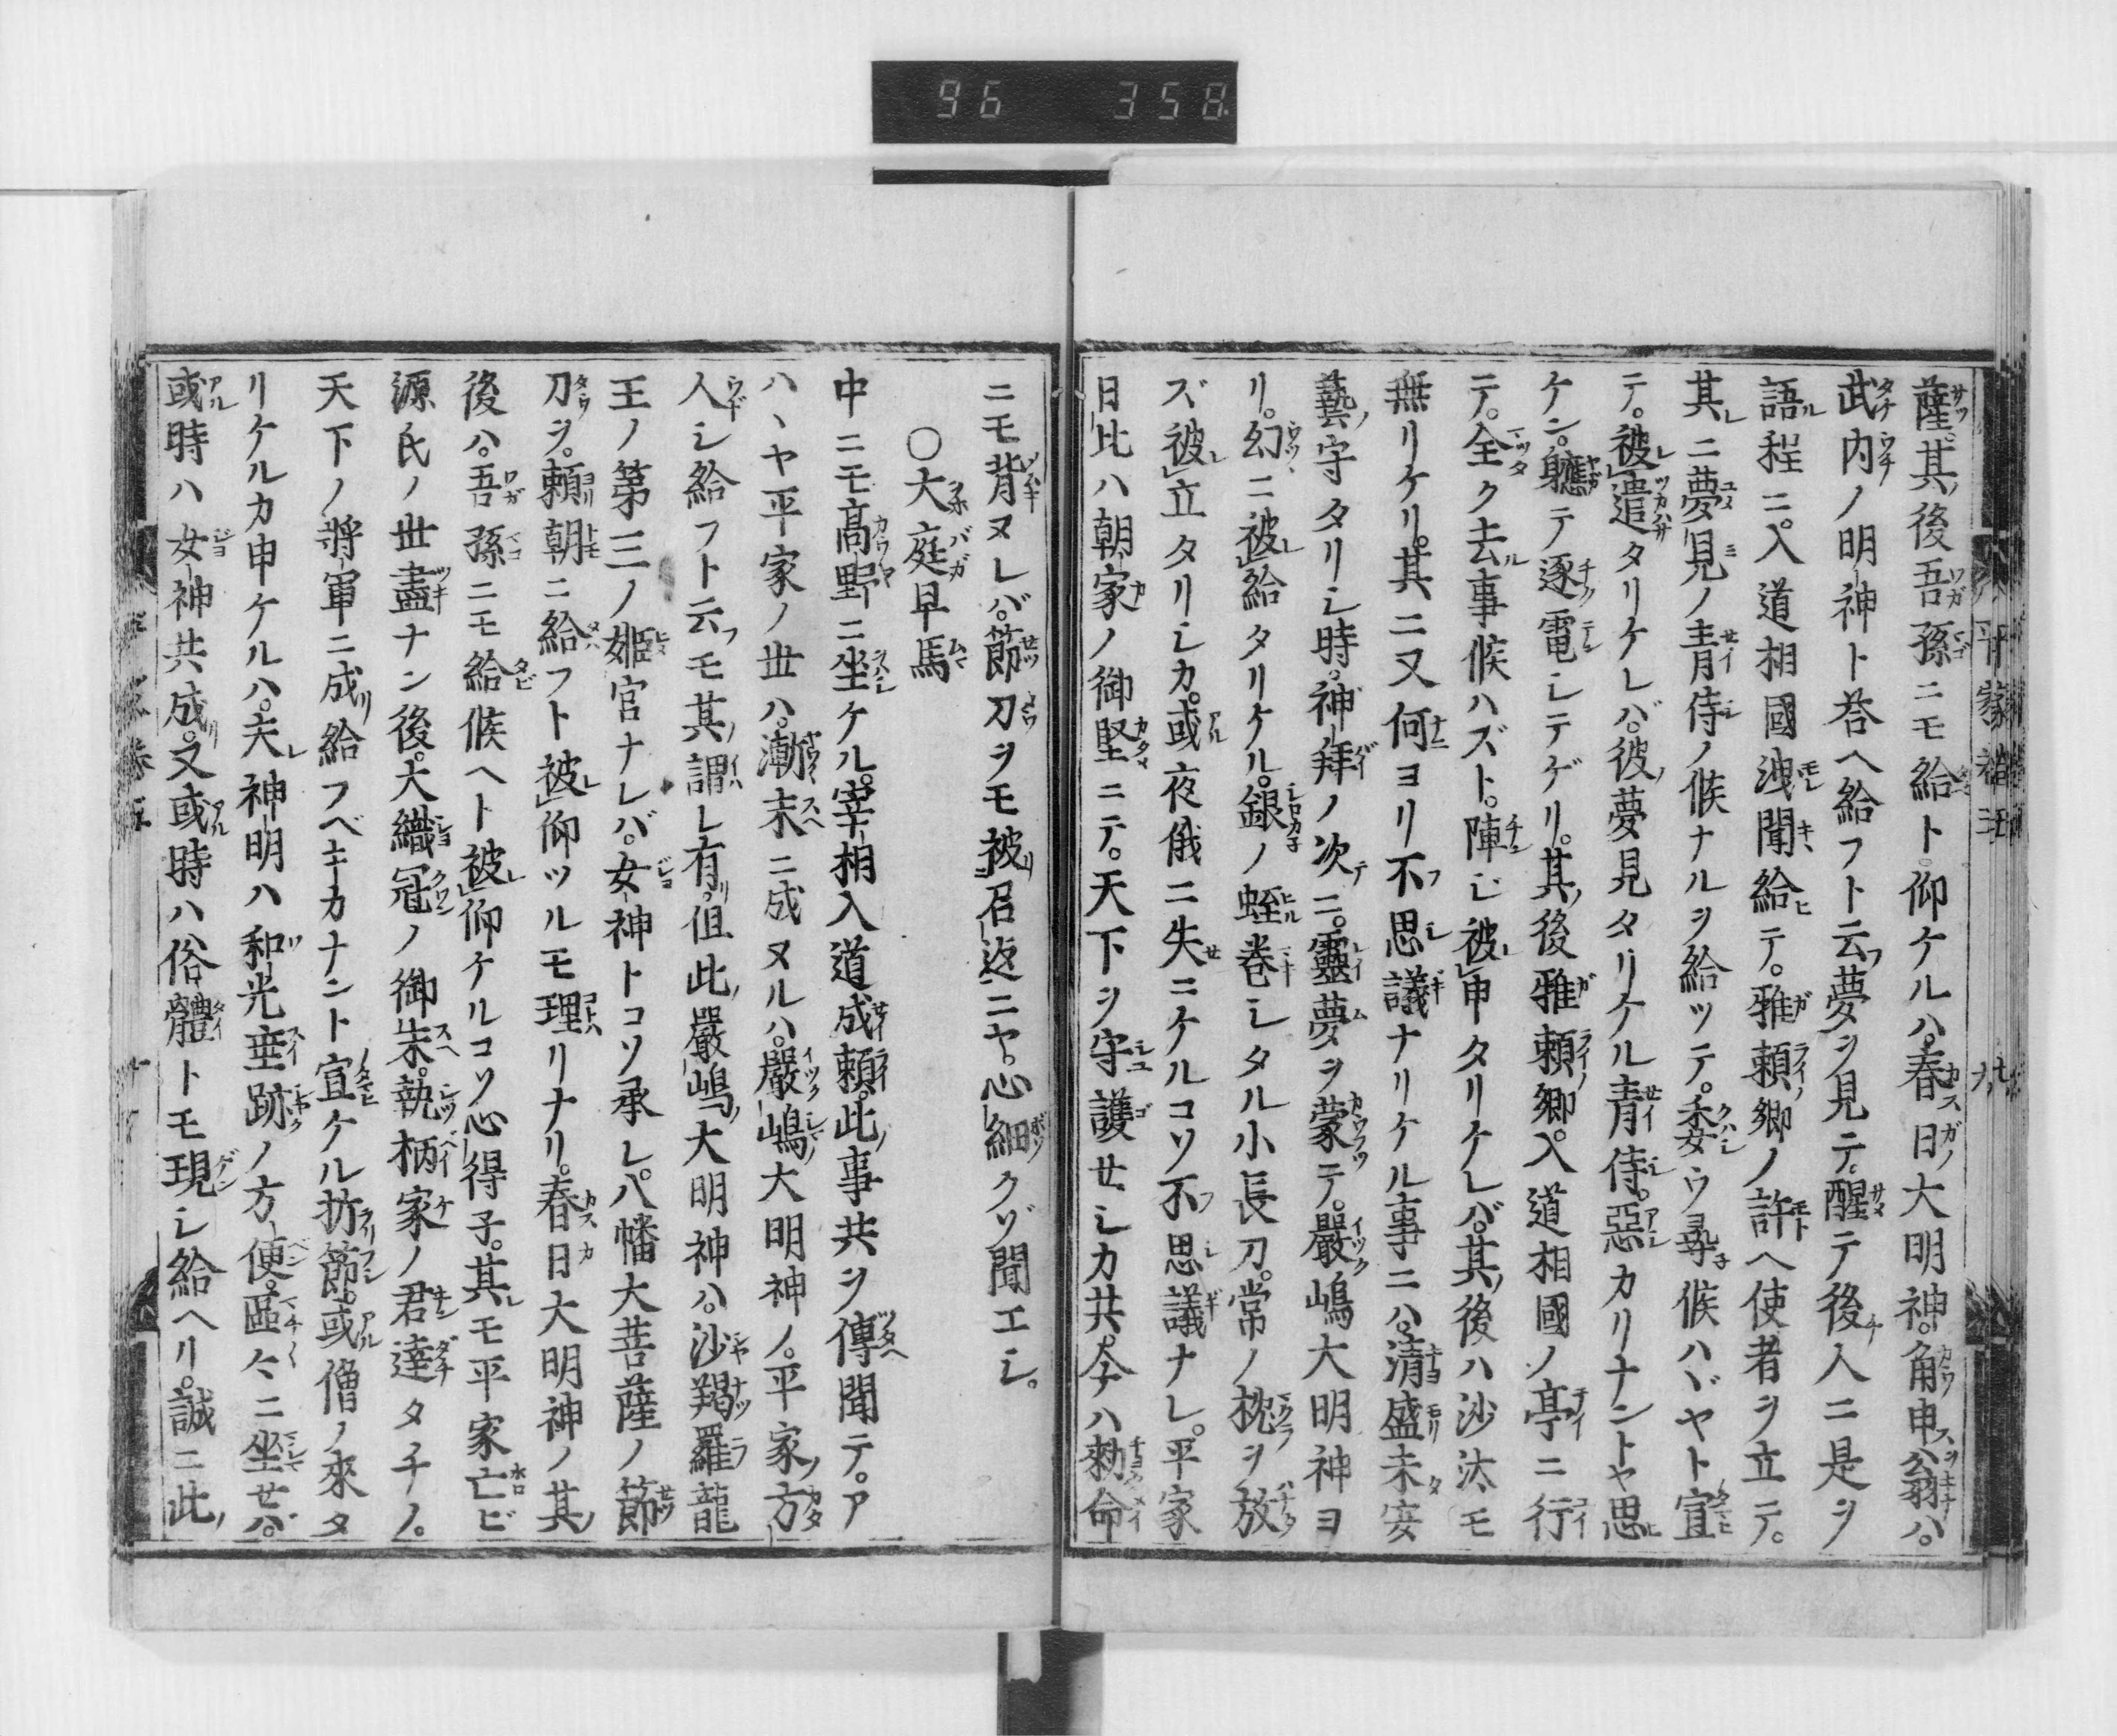 96 358
薩。其後吾孫ニモ給ト。仰ケルハ。春日ノ大明神。角申ス翁ハ。
武内ノ明神ト荅ヘ給フト云フ夢ヲ見テ。醒テ後チ人ニ是ヲ
語ル程ニ。入道相國洩聞給ヒテ。雅頼ノ卿ノ許ヘ使者ヲ立テ。
其レニ夢見ノ青侍ノ候ナルヲ給ツテ。委ウ尋候ハヾヤト宣
テ。被レ遣タリケレバ。彼ノ夢見タリケル青侍。惡カリナントヤ思ヒ
ケン。軈テ逐電シテゲリ。其ノ後雅頼ノ卿。入道相國ノ亭ニ行
テ。全ク去ル事候ハズト。陳ジ被レ申タリケレバ。其ノ後ハ沙汰モ
無リケリ。其ニ又何ヨリ不思議ナリケル事ニハ。清盛未タ安
藝ノ守タリシ時。神拜ノ次テニ。靈夢ヲ蒙テ。嚴嶋大明神ヨ
リ。幻ニ被レ給タリケル。銀ノ蛭巻シタル小長刀。常ノ枕ヲ放
ズ被レ立タリシカ。或夜俄ニ失セニケルコソ不思議ナレ。平家
日比ハ朝家ノ御堅ニテ。天下ヲ守護セシカ共。今ハ勅命
ニモ背ヌレバ。節刀ヲモ被召返ニヤ。心細クゾ聞エシ。
○大庭早馬
中ニモ高野ニ坐ケル。宰相入道成頼。此ノ事共ヲ傳聞テ。ア
ハヽヤ平家ノ世ハ。漸末ニ成ヌルハ。嚴嶋ノ大明神ノ。平家ノ方
人シ給フト云フモ其ノ謂レ有リ。但此ノ嚴嶋ノ大明神ハ。沙羯羅龍
王ノ第三ノ姫宮ナレバ。女神トコソ承レ。八幡大菩薩ノ節
刀ヲ。頼朝ニ給フト被レ仰ツルモ理リナリ。春日大明神ノ其ノ
後ハ。吾孫ニモ給候ヘト被レ仰ケルコソ心得子。其レモ平家亡ビ
源氏ノ世盡ナン後。大織冠ノ御末。執柄家ノ君達タチノ。
天下ノ將軍ニ成リ給フベキカナント宣ケル折節。或僧ノ來タ
リケルカ申ケルハ。夫レ神明ハ和光垂跡ノ方便。區々ニ坐セバ。
或時ハ女神共成リ。又或時ハ俗體トモ現シ給ヘリ。誠ニ此ノ